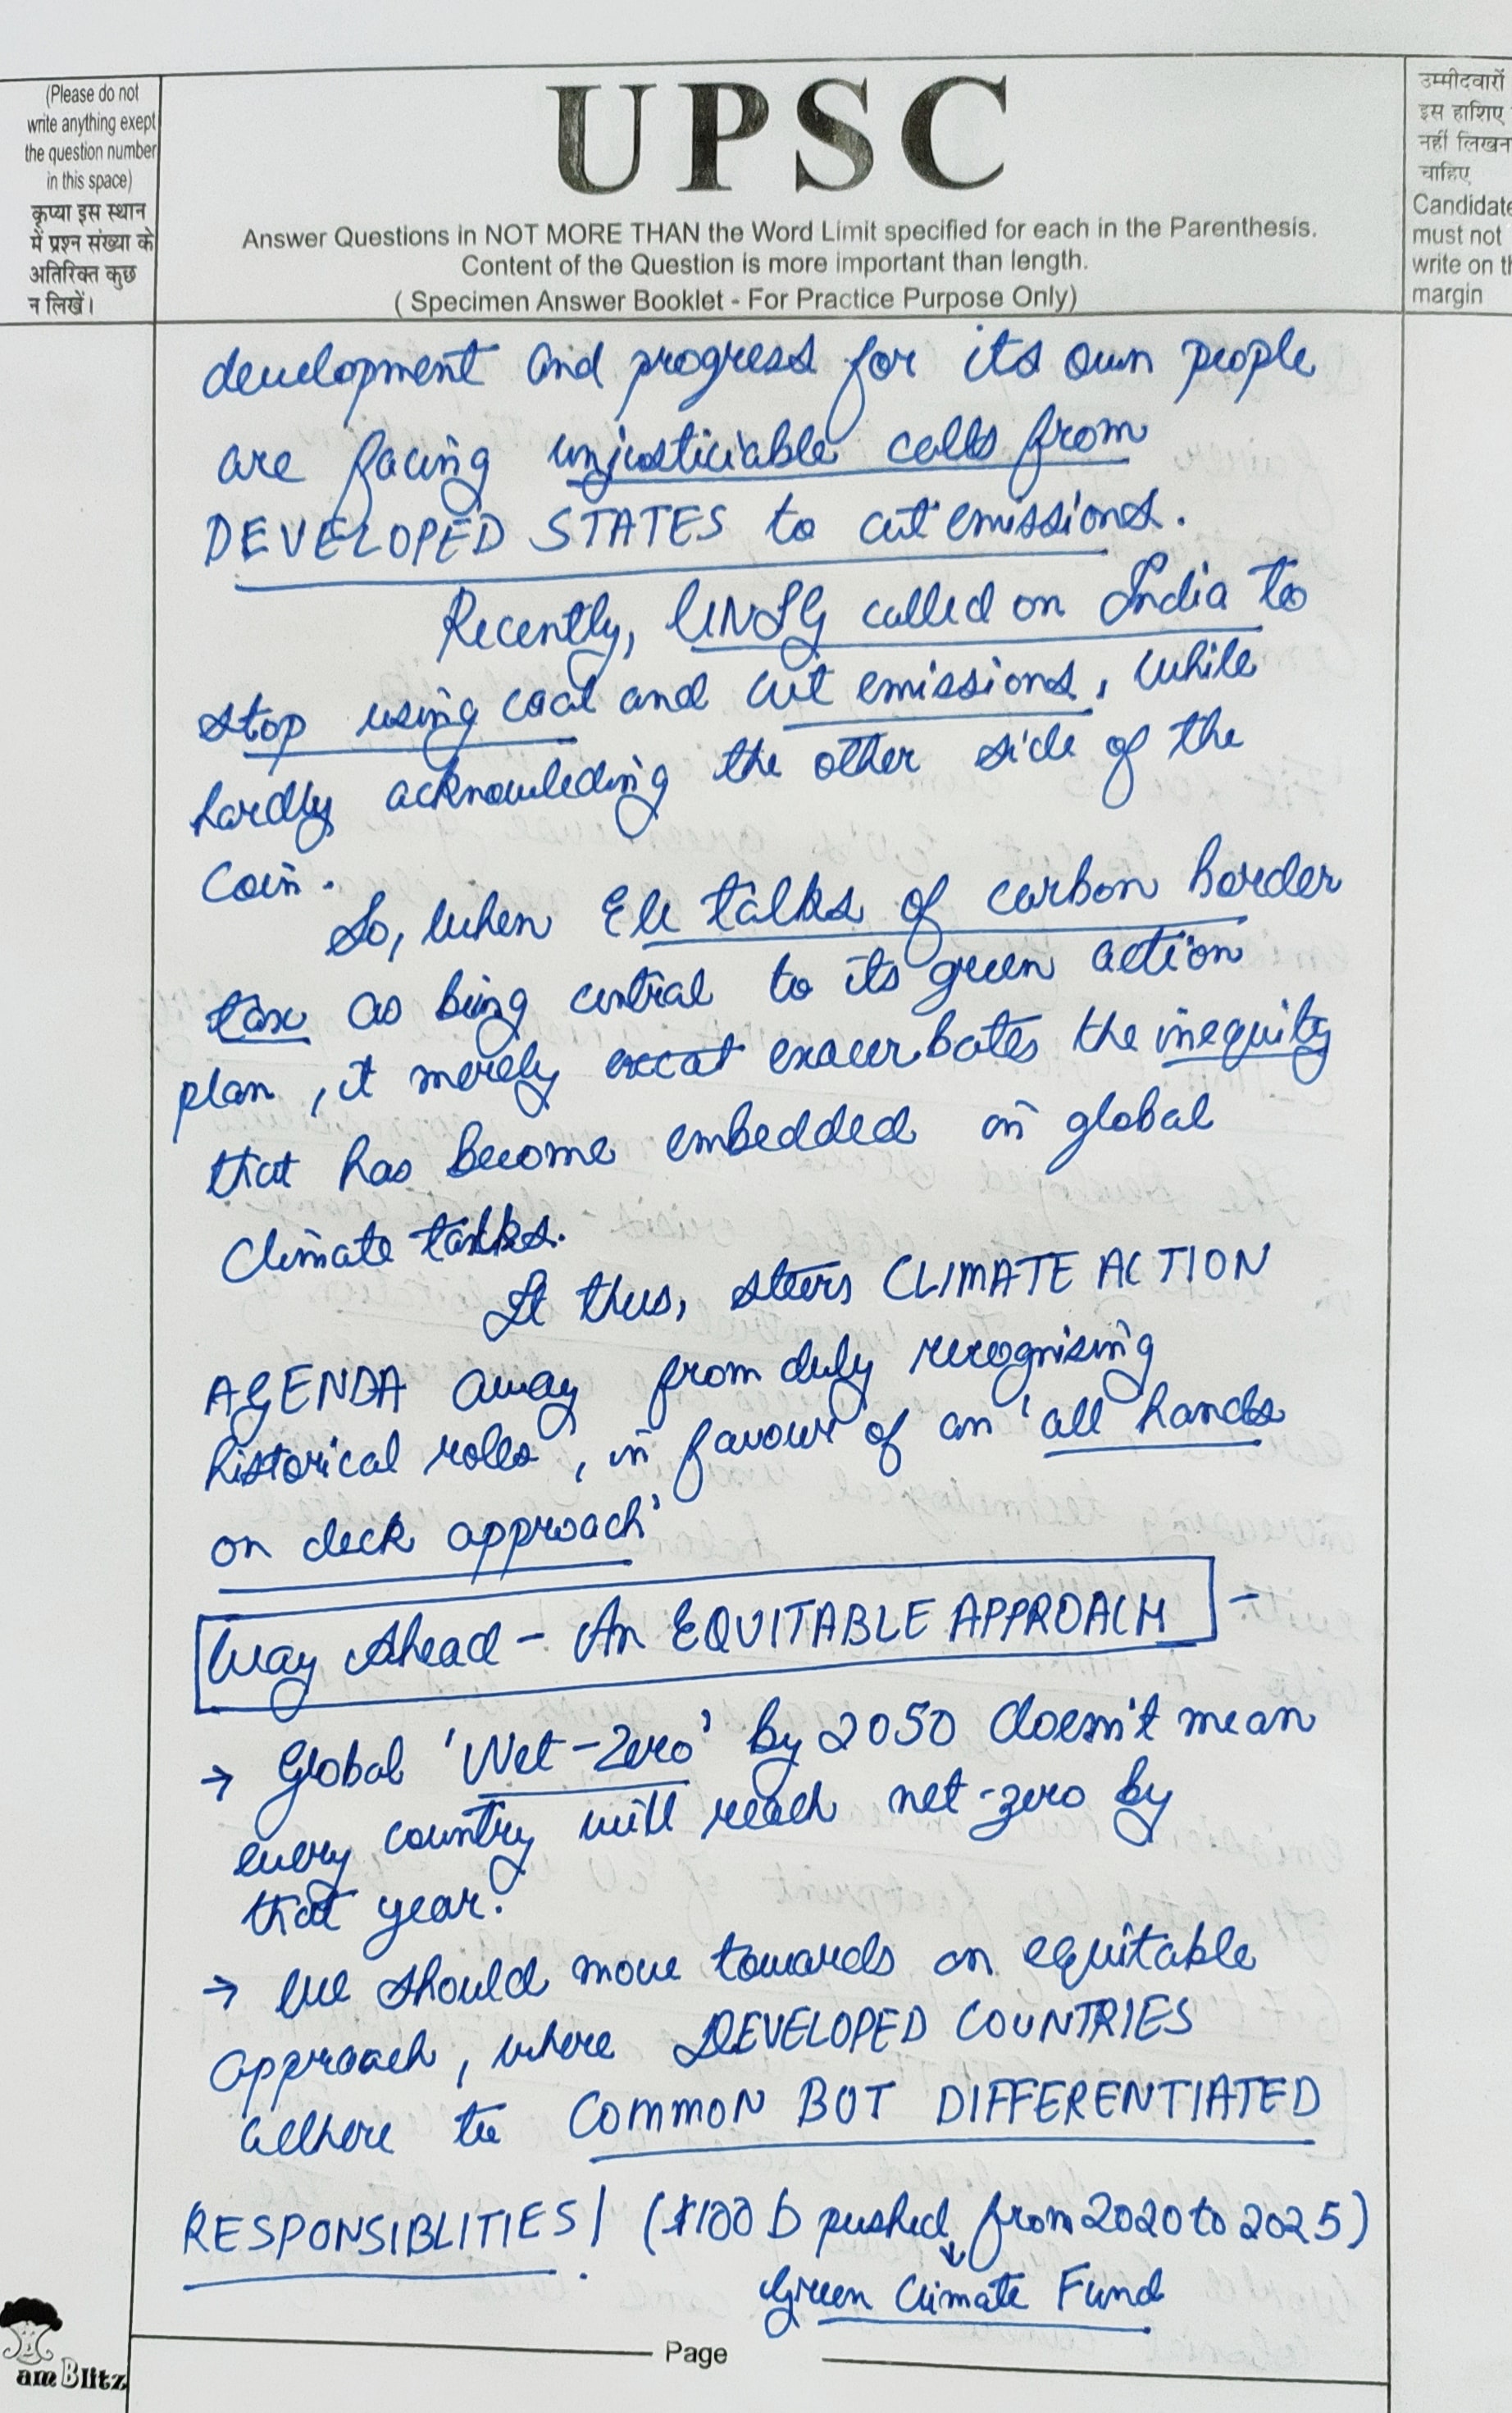 (Please do not
write anything exept
the question number
in this space)
कृप्या इस स्थान
में प्रश्न संख्या के
अतिरिक्त कुछ
न लिखें।
UPSC
Answer Questions in NOT MORE THAN the Word Limit specified for each in the Parenthesis.
Content of the Question is more important than length.
( Specimen Answer Booklet - For Practice Purpose Only)
उम्मीदवारों
इस हाशिए
नहीं लिखन
चाहिए
Candidate
must not
write on th
margin
development and progress for its own people
are facing unjusticiable calls from
DEVELOPED STATES to cut emissions.
Recently, UNSG called on India to
stop using coal and cut emissions, while
hardly acknowleding the other side of the
coin.
So, when EU talks of carbon border
tax as being central to its green action
plan, it merely exacerbates the inequity
that has become embedded in global
climate talks.
It thus, steers CLIMATE ACTION
AGENDA away from duly recognising
historical roles, in favour of an 'all hands
on deck approach'
Way Ahead - An EQUITABLE APPROACH -
→ Global 'Net-Zero' by 2050 doesn't mean
every country will reach net-zero by
that year.
→ We should move towards an equitable
approach, where DEVELOPED COUNTRIES
adhere to COMMON BUT DIFFERENTIATED
RESPONSIBLITIES! ($100 b pushed from 2020 to 2025)
↓
Green Climate Fund
Page
am Blitz